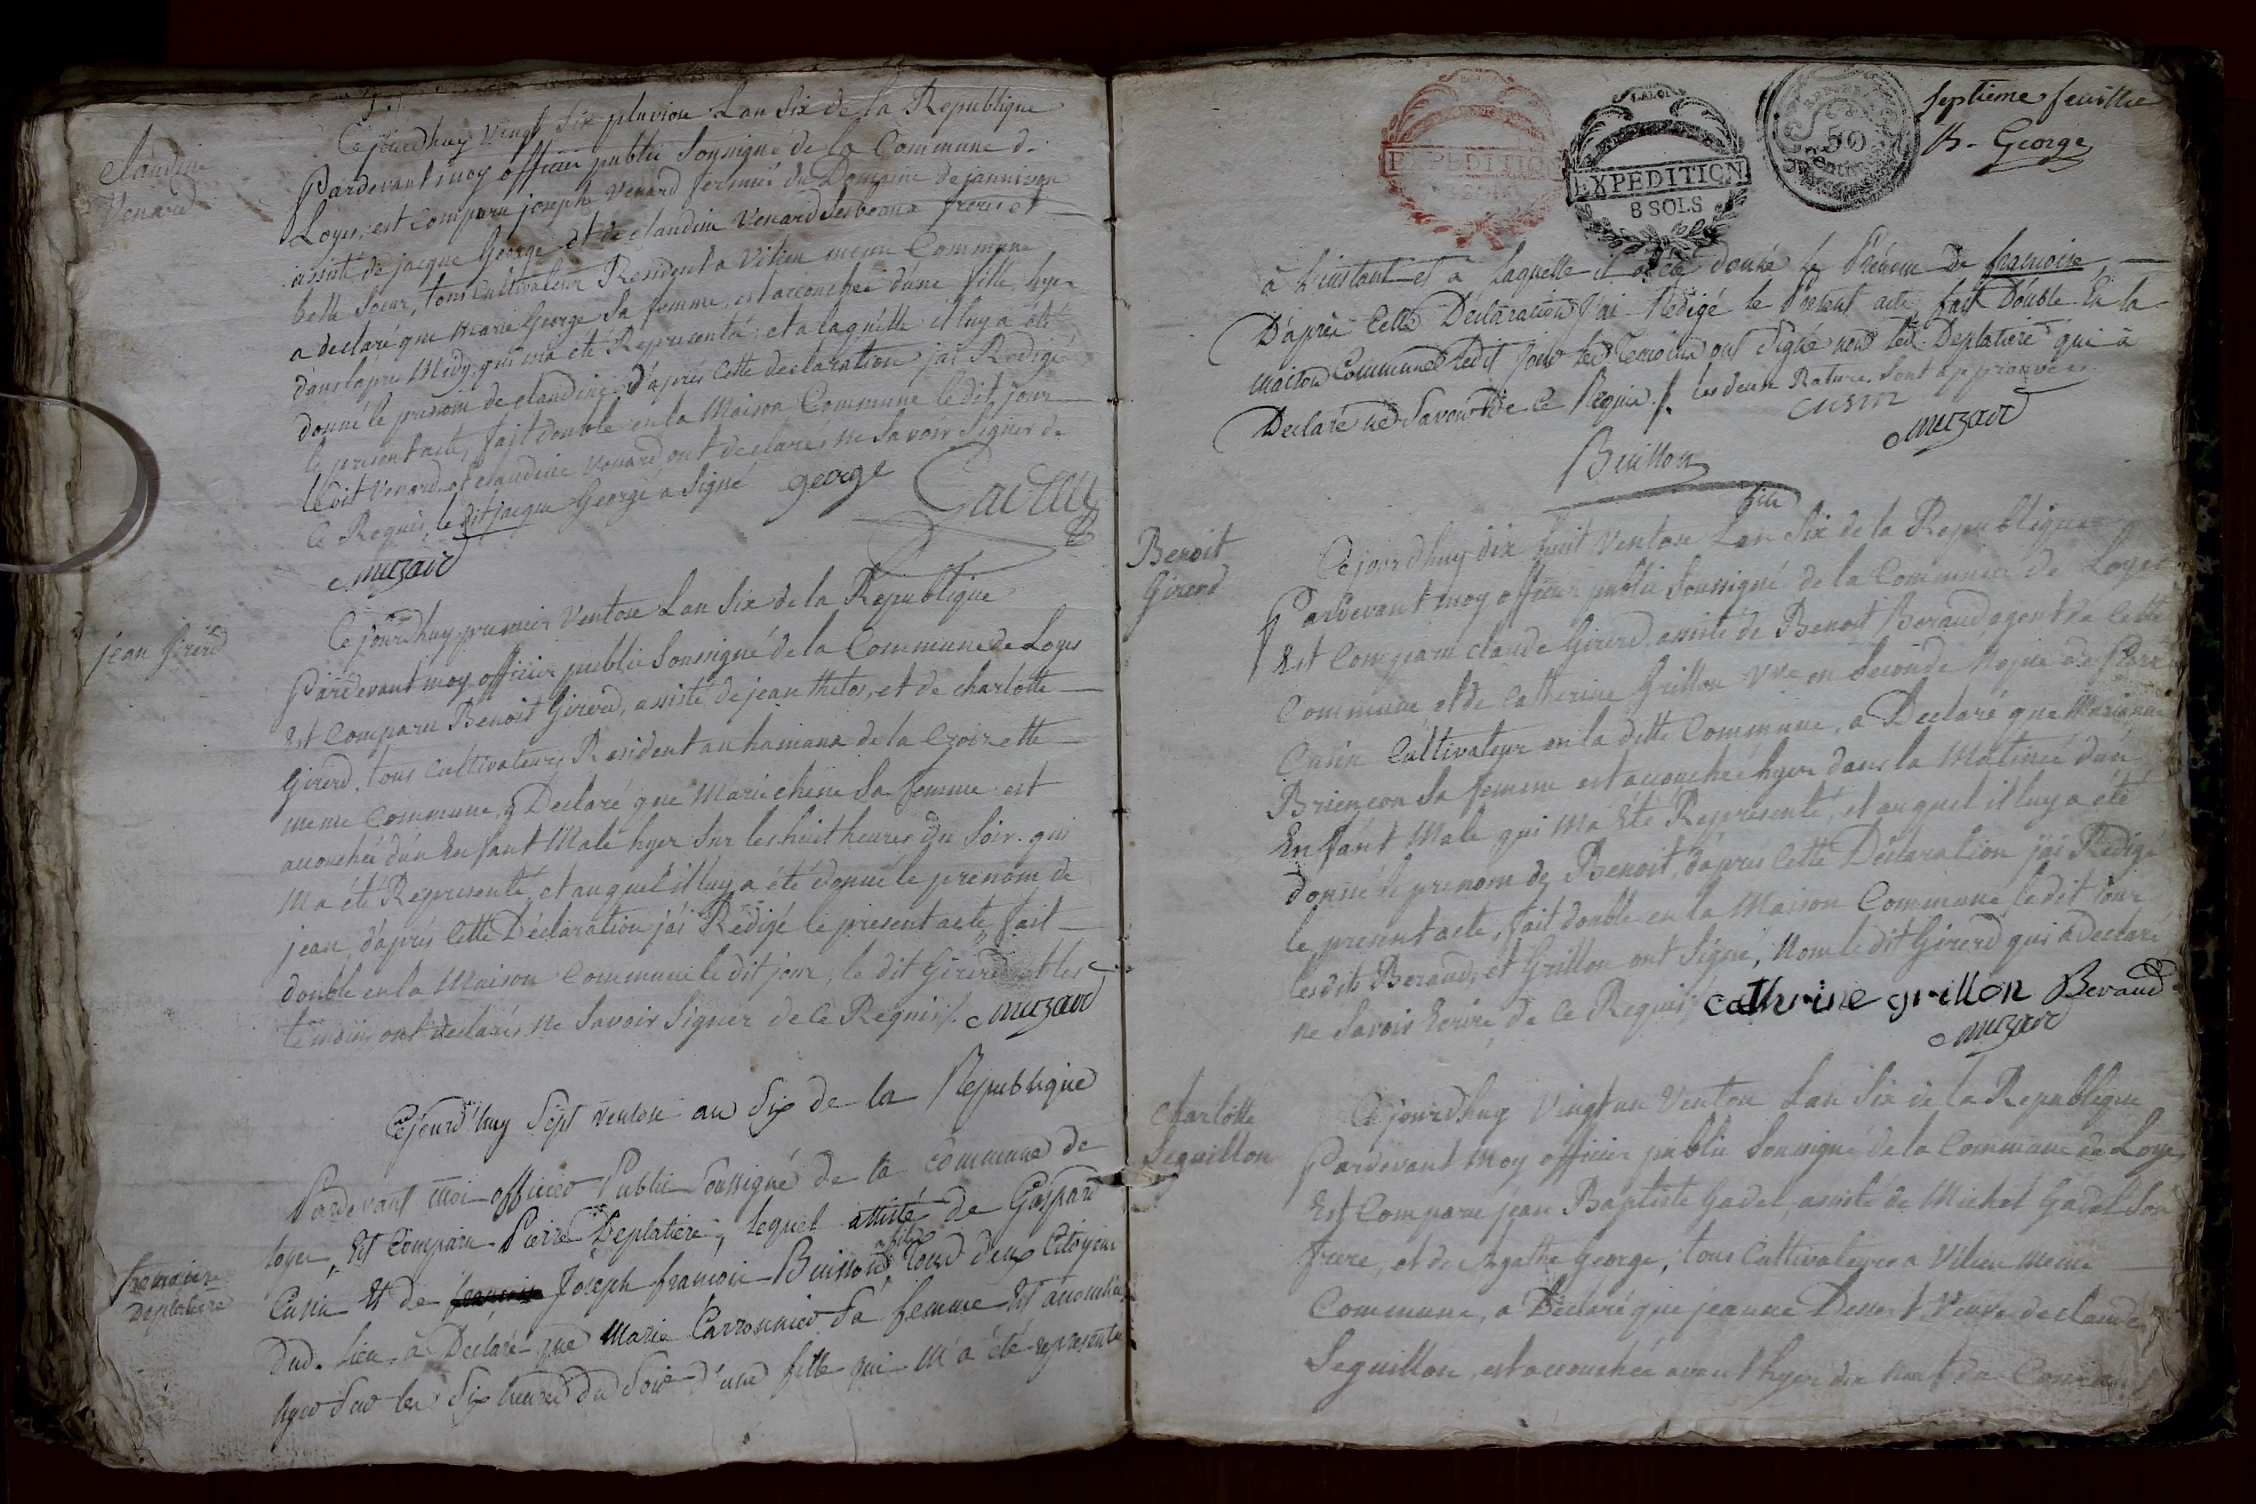 Claudine
Venard
Ce jourdhuy vingt six pluviose Lan Six de la Republique
Pardevant moy officier public Soussigné de la Commune de
Loyes, est Comparu joseph Venard fermier du Domaine de
assisté de jacque George et de claudine Venard Ses beaux frere et
belle Soeur, tous Cultivateurs Resident a Vilieu meme Commune
a declaré que Marie George Sa femme, est accouchée d'une fille hyer
dans lapres Midy, qui ma été Representé, et a laquelle il luy a été
donné le prenom de claudine, d'après cette declaration jai Redigé
le present acte, fait double en la Maison Commune le dit jour
le dit Venard et claudine Venard ont declarés ne Savoir Signer de
Ce Requis, le dit jacque George a Signé george
Muzard
jean Girerd
Ce jourdhuy premier Ventose Lan Six de la Republique
Pardevant moy officier public Soussigné de la Commune de Loyes
Est Comparu Benoit Girerd, assisté de jean thetos, et de charlotte
Girerd, tous Cultivateurs Resident au hamaux de la Croizette
meme Commune, a Declaré que Marie chene Sa femme est
accouchée d'un Enfant Male hyer Sur les huit heures du Soir. qui
Ma été Representé, et auquel il luy a été donné le prenom de
jean, d'après Cette Déclaration j'ai Redigé le present acte, fait
double en la Maison Commune le dit jour, le dit Girerd et les
temoins ont declarés ne Savoir Signer de Ce Requis /. Muzard
francoise
Deplatiere
Cejourd'huy Sept ventose an Six de la Republique
Pardevant moi officier Public Soussigné de la Commune de
loyes, Est Comparu Pierre Deplatiere, lequel assisté de Gaspard
Cusin Et de Joseph francois Buisson fils Tous deux Citoyens
dud. lieu a Déclaré que Marie Carronnier Sa femme Est accouchée
hyer Sur les Six heures du Soir d'une fille qui M'a été representée
EXPEDITION
LA LOI
EXPEDITION
8 SOLS
50
Septieme feuille
B. George
à L'instant et a laquelle il a été donné le Prénom de francoise
D'après Cette Déclaration J'ai Redigé le Present acte, fait Double En la
maison Commune ledit Jour les Temoins ont Signé non led. Deplatiere qui à
Declaré ne Savoir de ce Requis /. les deux Rature Sont approuvées
cusin
Muzard
Buisson
fils
Benoit
Girerd
Ce jourdhuy dix huit Ventose Lan Six de la Republique
Pardevant moy officier public Soussigné de la Commune de Loyes
Est Comparu claude Girerd assisté de Benoit Beraud agent de Cette
Commune, et de Catherine Grillon Vve en Seconde Nopce de Pierre
Cusin Cultivateur en la ditte Commune, a Declaré que Marianne
Briençon Sa femme est accouchée hyer dans la Matinée d'un
Enfant Male qui ma Eté Representé, et auquel il luy a été
donné le prenom de Benoit, d'apres Cette Déclaration jai Redigé
le present acte, fait double en la Maison Commune le dit jour
lesdits Beraud, et Grillon ont Signé, Non le dit Girerd qui a Declaré
ne Savoir Ecrire de Ce Requis cathrine grillon Beraud
Muzard
Charlotte
Seguillon
Ce jourdhuy Vingt un Ventose Lan Six de la Republique
Pardevant moy officier public Soussigné de la Commune de Loyes
Est Comparu jean Baptiste Gadel, assisté de Michel Gadel Son
frere, et de Agathe George, tous Cultivateurs a Vilieu meme
Commune, a Déclaré que jeanne Veuve de claude
Seguillon, est accouchée avant hyer dix neuf du Courant